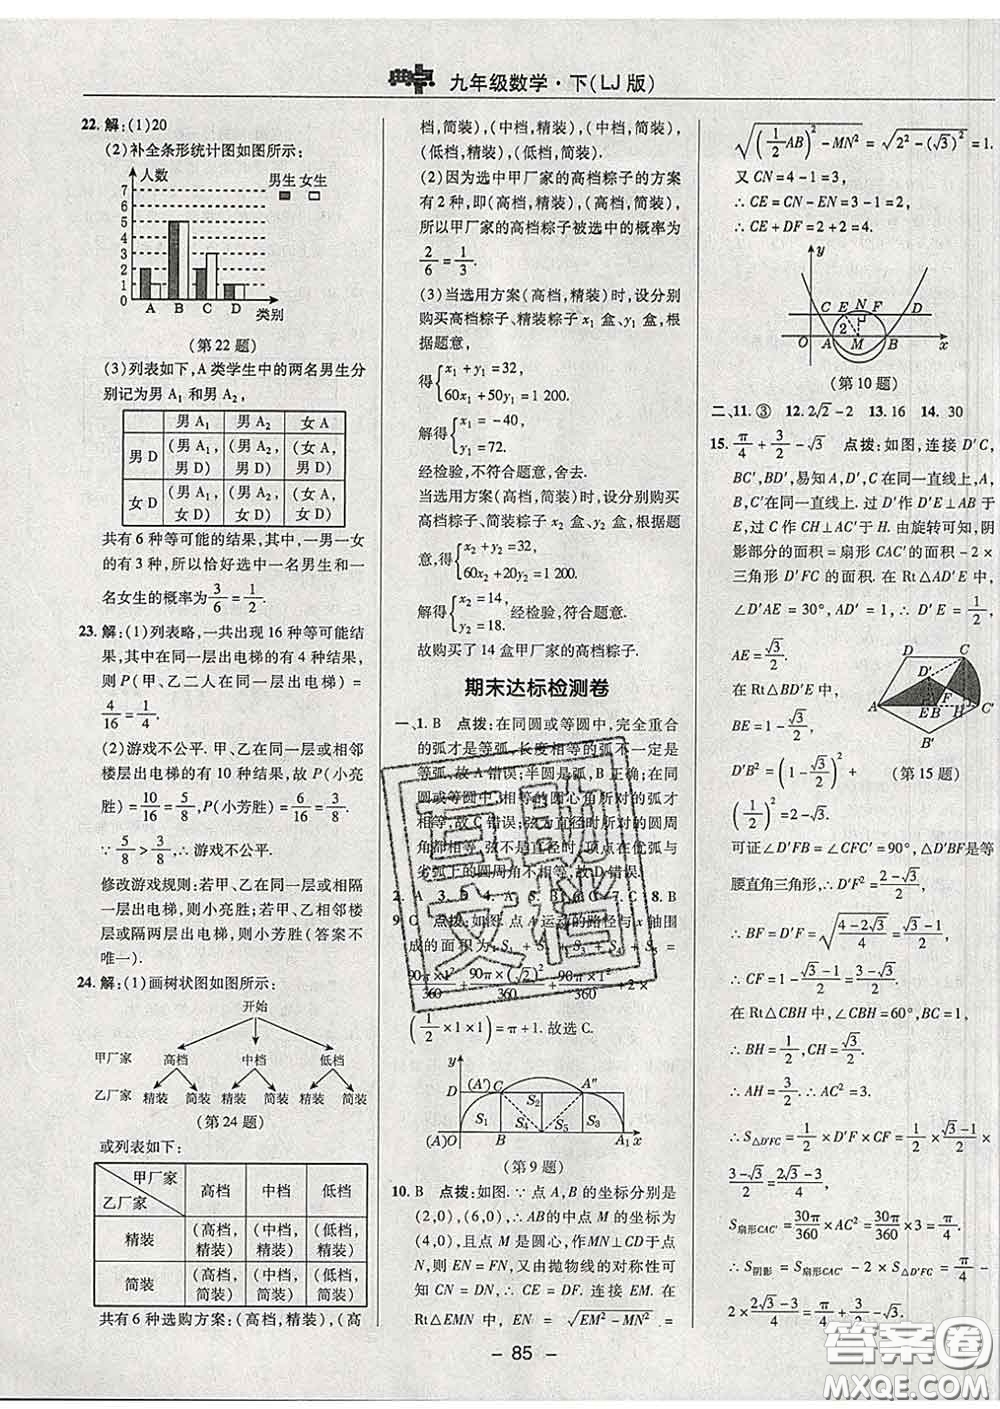 典中点 九年级数学·下(LJ版)
22. 解:(1)20
(2)补全条形统计图如图所示:
人数
男生 女生
7
6
5
4
3
2
1
0
A B C D
类别
(第22题)
(3)列表如下,A类学生中的两名男生分
别记为男A₁和男A₂,
男A₁ 男A₂ 女A
男D (男A₁,男D) (男A₂,男D) (女A,男D)
女D (男A₁,女D) (男A₂,女D) (女A,女D)
共有6种等可能的结果,其中,一男一女
的有3种,所以恰好选中一名男生和
一名女生的概率为3/6=1/2.
23. 解:(1)列表略,一共出现16种等可能结
果,其中在同一层出电梯的有4种结果,
则P(甲、乙二人在同一层出电梯)=
4/16=1/4.
(2)游戏不公平. 甲、乙在同一层或相邻
楼层出电梯的有10种结果,故P(小亮
胜)=10/16=5/8,P(小芳胜)=6/16=3/8,
∵5/8>3/8,∴游戏不公平.
修改游戏规则:若甲、乙在同一层或相隔
一层出电梯,则小亮胜;若甲、乙相隔两
层或隔两层以上出电梯,则小芳胜(答案不
唯一).
24. 解:(1)画树状图如图所示:
开始
甲厂家 高档 中档 低档
乙厂家 精装 简装 精装 简装 精装 简装
(第24题)
或列表如下:
甲厂家 乙厂家 高档 中档 低档
精装 (高档,精装) (中档,精装) (低档,精装)
简装 (高档,简装) (中档,简装) (低档,简装)
共有6种选购方案:(高档,精装),(高
档,简装),(中档,精装),(中档,简装),
(低档,精装),(低档,简装).
(2)因为选中甲厂家的高档粽子的方案
有2种,即(高档,精装),(高档,简装),
所以甲厂家的高档粽子被选中的概率为
2/6=1/3.
(3)当选用方案(高档,精装)时,设分别
购买高档粽子、精装粽子x₁盒、y₁盒,根
据题意,
得{x₁+y₁=32,
60x₁+50y₁=1 200.
解得{x₁=-40,
y₁=72.
经检验,不符合题意,舍去.
当选用方案(高档,简装)时,设分别购买
高档粽子、简装粽子x₂盒、y₂盒,根据题
意,得{x₂+y₂=32,
60x₂+20y₂=1 200.
解得{x₂=14,
y₂=18. 经检验,符合题意.
故购买了14盒甲厂家的高档粽子.
期末达标检测卷
一、1. B 点拨:在同圆或等圆中,完全重合
的弧才是等弧,长度相等的弧不一定是
等弧,故A错误;半圆是弧,B正确;在同
圆或等圆中,相等的圆心角所对的弧才
相等,故C错误;弦为直径时所对的圆周
角都相等,弦不是直径时,顶点在优弧与
劣弧上的圆周角不相等,故D错误.
8. B
9. C 点拨:如图,点A运动的路径与x轴围
成的面积为:S₁+S₂+S₃+S₄+S₅=
90π×1²/360+90π×(√2)²/360+90π×1²/360+2×
(1/2×1×1)=π+1. 故选C.
y
D (A′) C A″
S₁ S₂ S₃ S₄ S₅
(A)O B A₁ x
(第9题)
10. B 点拨:如图. ∵点A,B的坐标分别是
(2,0),(6,0),∴AB的中点M的坐标为
(4,0),且点M是圆心,作MN⊥CD于点
N,则EN=FN,又由抛物线的对称性可
知CN=DN,∴CE=DF. 连接EM. 在
Rt△EMN中, EN=√(EM²-MN²)=
√((1/2AB)²-MN²)=√(2²-(√3)²)=1.
又CN=4-1=3,
∴CE=CN-EN=3-1=2,
∴CE+DF=2+2=4.
y
C E N F D
2
O A M B x
(第10题)
二、11. ③ 12. 2√2-2 13. 16 14. 30
15. π/4+3/2-√3 点拨:如图,连接D′C,
BC′,BD′,易知A,D′,C在同一直线上,A,
B,C′在同一直线上. 过D′作D′E⊥AB于
E,过C作CH⊥AC′于H. 由旋转可知,阴
影部分的面积=扇形CAC′的面积-2×
三角形D′FC的面积. 在Rt△AD′E中,
∠D′AE=30°,AD′=1,∴D′E=1/2,
AE=√3/2.
在Rt△BD′E中,
BE=1-√3/2,
D′B²=(1-√3/2)²+
(1/2)²=2-√3.
D C D′ F A E B H C′ B′
(第15题)
可证∠D′FB=∠CFC′=90°,△D′BF是等
腰直角三角形,∴D′F²=(2-√3)/2.
∴BF=D′F=√((4-2√3)/4)=(√3-1)/2.
∴CF=1-(√3-1)/2=(3-√3)/2.
在Rt△CBH中,∠CBH=60°,BC=1,
∴BH=1/2,CH=√3/2.
∴AH=3/2.∴AC²=3.
∴S△D′FC=1/2×D′F×CF=1/2×(√3-1)/2×
(3-√3)/2=(2√3-3)/4.
S扇形CAC′=30π/360×AC²=30π/360×3=π/4.
∴S阴影=S扇形CAC′-2×S△D′FC=π/4-
2×(2√3-3)/4=π/4+3/2-√3.
- 85 -
互助文档
答案圈
MXQE.COM